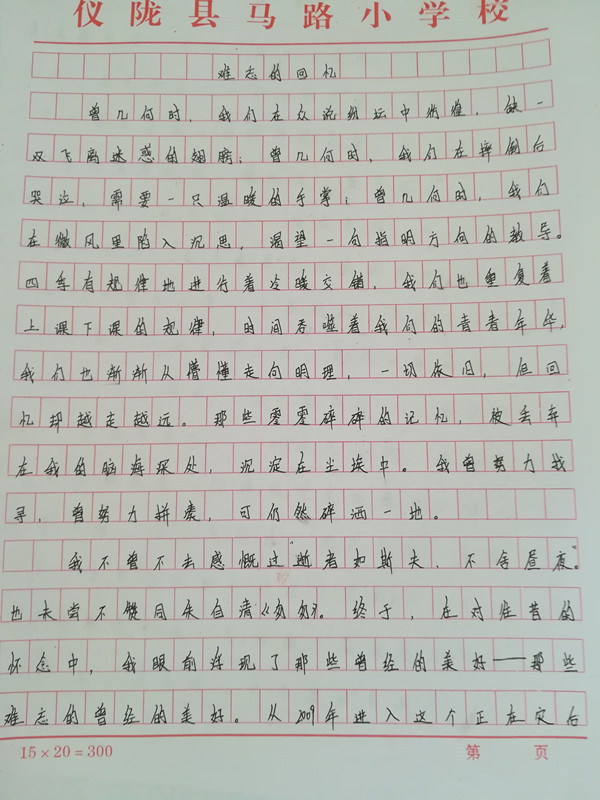 仪陇县马路小学校
难忘的回忆
曾几何时，我们在众说纷坛中彷徨，缺一
双飞离迷惑的翅膀；曾几何时，我们在摔倒后
哭泣，需要一只温暖的手掌；曾几何时，我们
在微风里陷入沉思，渴望一句指明方向的教导。
四季有规律地进行着冷暖交错，我们也重复着
上课下课的规律，时间吞噬着我们的青春年华，
我们也渐渐从懵懂走向明理，一切依旧，但回
忆却越走越远。那些零零碎碎的记忆，被丢弃
在我的脑海深处，沉淀在尘埃中。我曾努力找
寻，曾努力拼凑，可仍然碎洒一地。
我不曾不去感慨过“逝者如斯夫，不舍昼夜”。
也未尝不赞同朱自清《匆匆》。终于，在对往昔的
怀念中，我眼前浮现了那些曾经的美好——那些
难忘的曾经的美好。从2009年进入这个正在灾后
15×20=300 第 页